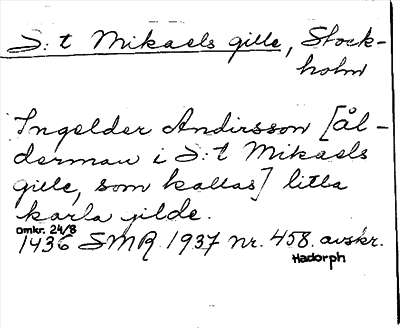 S:t Mikaels gille, Stock-
holm
Ingelder Andirsson [ål-
derman i S:t Mikaels
gille, som kallas] litla
karla jilde.
omkr. 24/8
1436 SMR 1937 nr. 458. avskr.
Hadorph